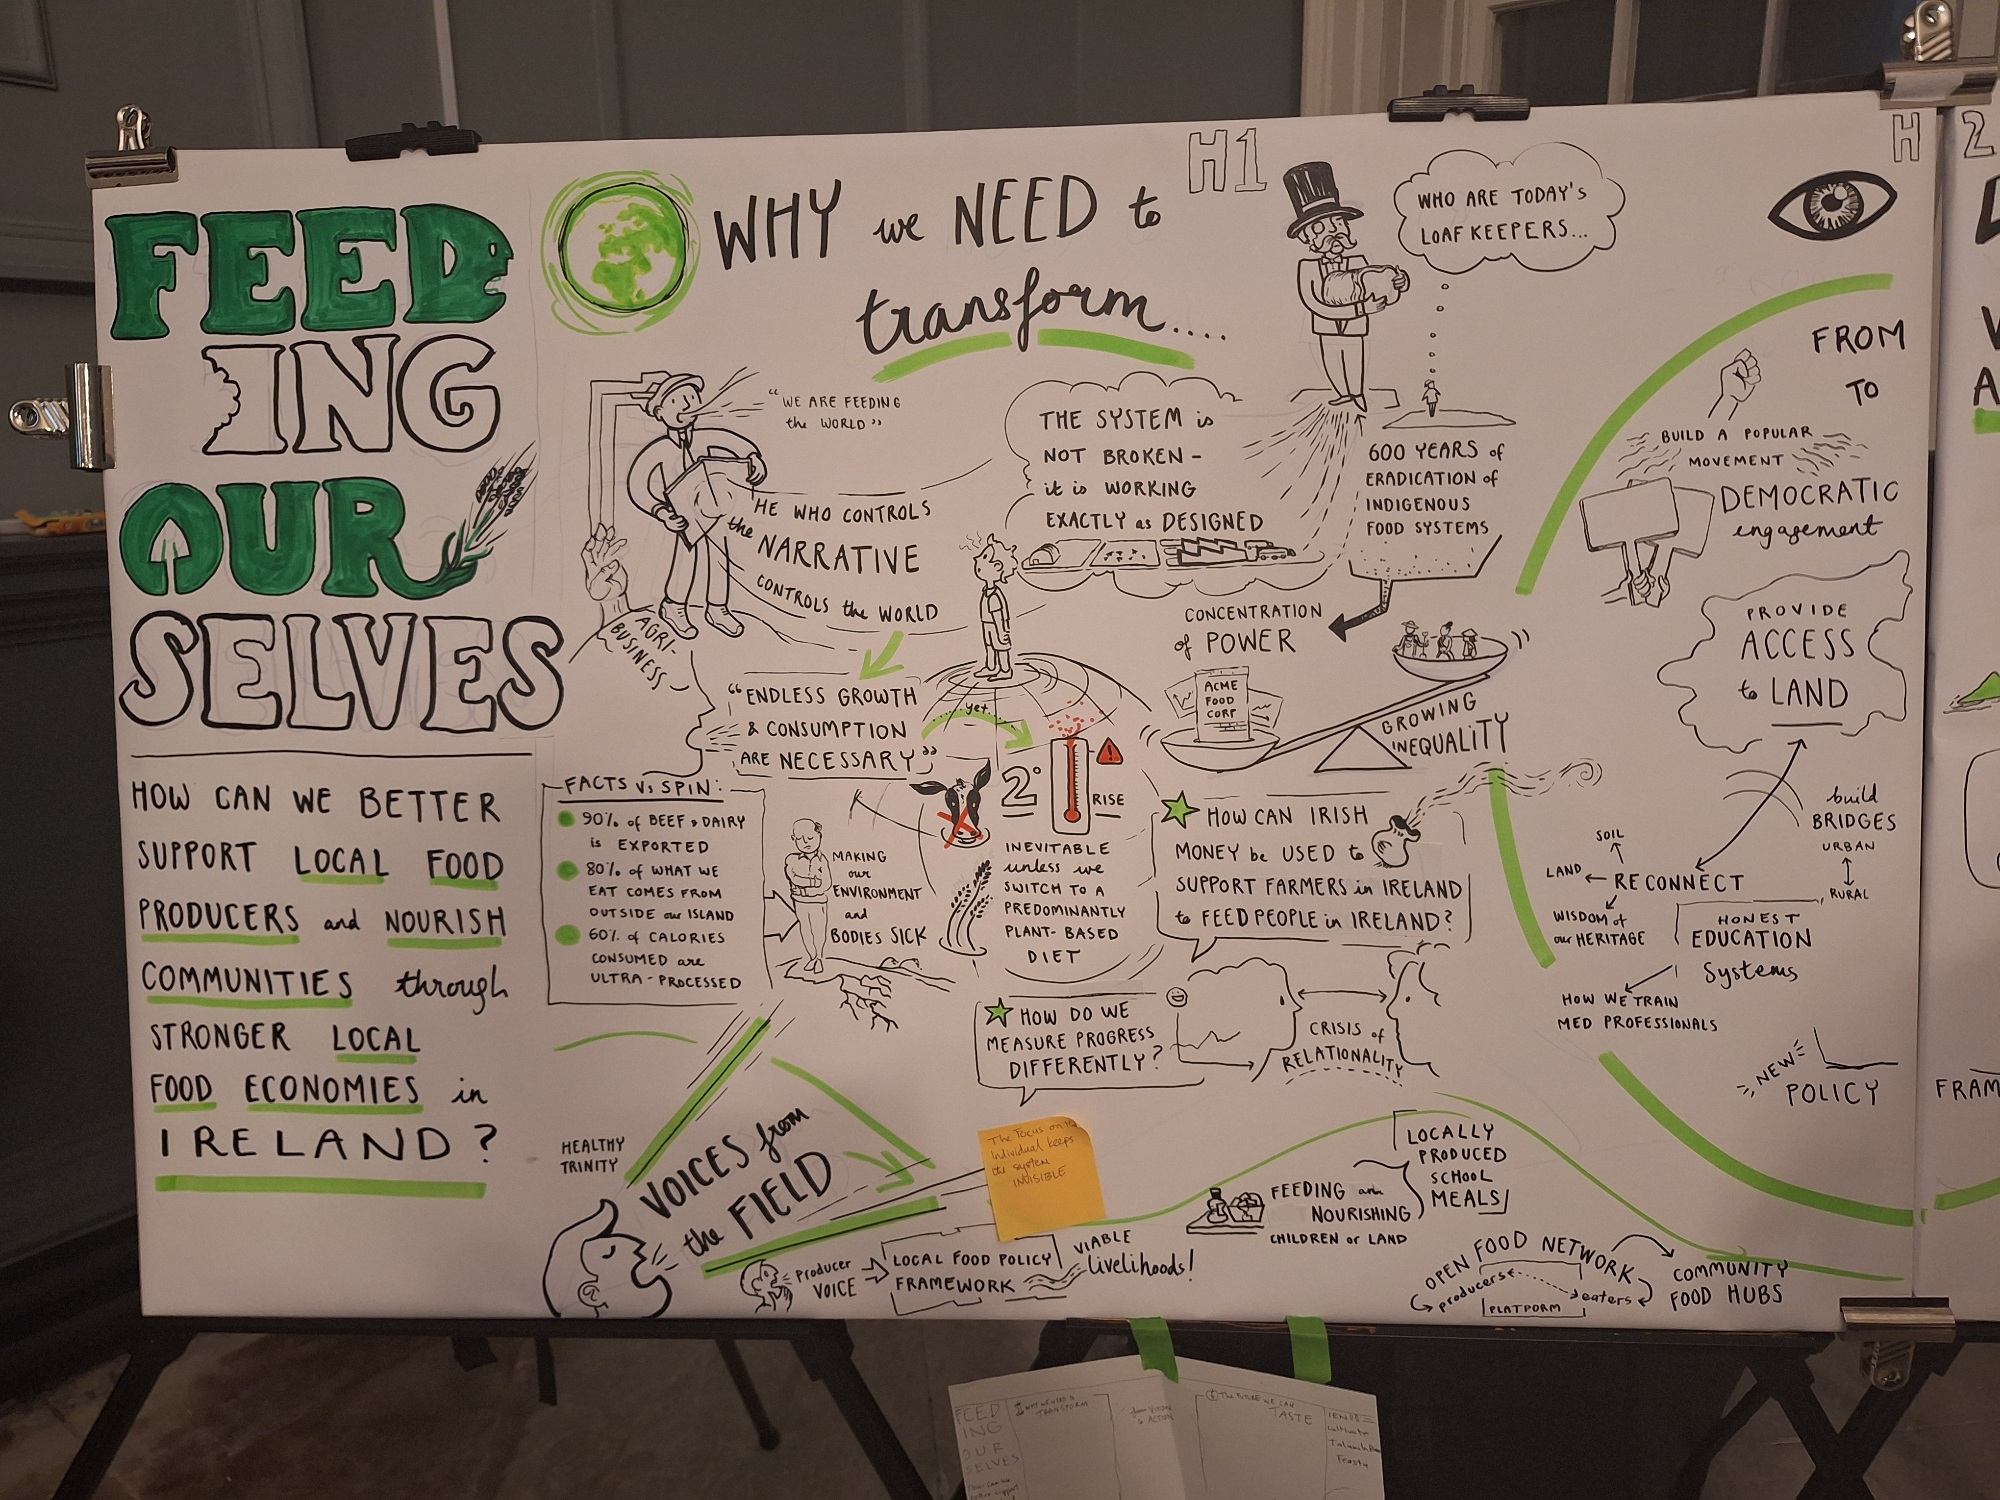 FEED
ING
OUR
SELVES
HOW CAN WE BETTER
SUPPORT LOCAL FOOD
PRODUCERS and NOURISH
COMMUNITIES through
STRONGER LOCAL
FOOD ECONOMIES in
IRELAND?
WHY we NEED to
transform....
H1
WHO ARE TODAY'S
LOAF KEEPERS...
"WE ARE FEEDING
the WORLD"
HE WHO CONTROLS
the NARRATIVE
CONTROLS the WORLD
AGRI-
BUSINESS
THE SYSTEM is
NOT BROKEN -
it is WORKING
EXACTLY as DESIGNED
600 YEARS of
ERADICATION of
INDIGENOUS
FOOD SYSTEMS
CONCENTRATION
of POWER
ACME
FOOD
CORP
GROWING
INEQUALITY
"ENDLESS GROWTH
& CONSUMPTION
ARE NECESSARY"
yet...
2°
RISE
INEVITABLE
unless we
SWITCH TO A
PREDOMINANTLY
PLANT-BASED
DIET
FACTS Vs SPIN:
90% of BEEF & DAIRY
is EXPORTED
80% of WHAT WE
EAT COMES FROM
OUTSIDE our ISLAND
60% of CALORIES
CONSUMED are
ULTRA-PROCESSED
MAKING
our
ENVIRONMENT
and
BODIES SICK
HOW CAN IRISH
MONEY be USED to
SUPPORT FARMERS in IRELAND
to FEED PEOPLE in IRELAND?
HOW DO WE
MEASURE PROGRESS
DIFFERENTLY?
CRISIS of
RELATIONALITY
HEALTHY
TRINITY
VOICES from
the FIELD
The focus on the
Individual keeps
the system
INVISIBLE
PRODUCER
VOICE
LOCAL FOOD POLICY
FRAMEWORK
VIABLE
livelihoods!
FEEDING and
NOURISHING
CHILDREN OF LAND
LOCALLY
PRODUCED
SCHOOL
MEALS
OPEN FOOD NETWORK
producers
eaters
PLATFORM
COMMUNITY
FOOD HUBS
H
2
FROM
TO
BUILD A POPULAR
MOVEMENT
DEMOCRATIC
engagement
PROVIDE
ACCESS
to LAND
build
BRIDGES
URBAN
RURAL
SOIL
LAND
RECONNECT
WISDOM of
our HERITAGE
HONEST
EDUCATION
Systems
HOW WE TRAIN
MED PROFESSIONALS
NEW
POLICY
FRAM
FEED
ING
OUR
SELVES
WHY WE NEED to
TRANSFORM
from VISION
to ACTION
THE FUTURE WE CAN
TASTE